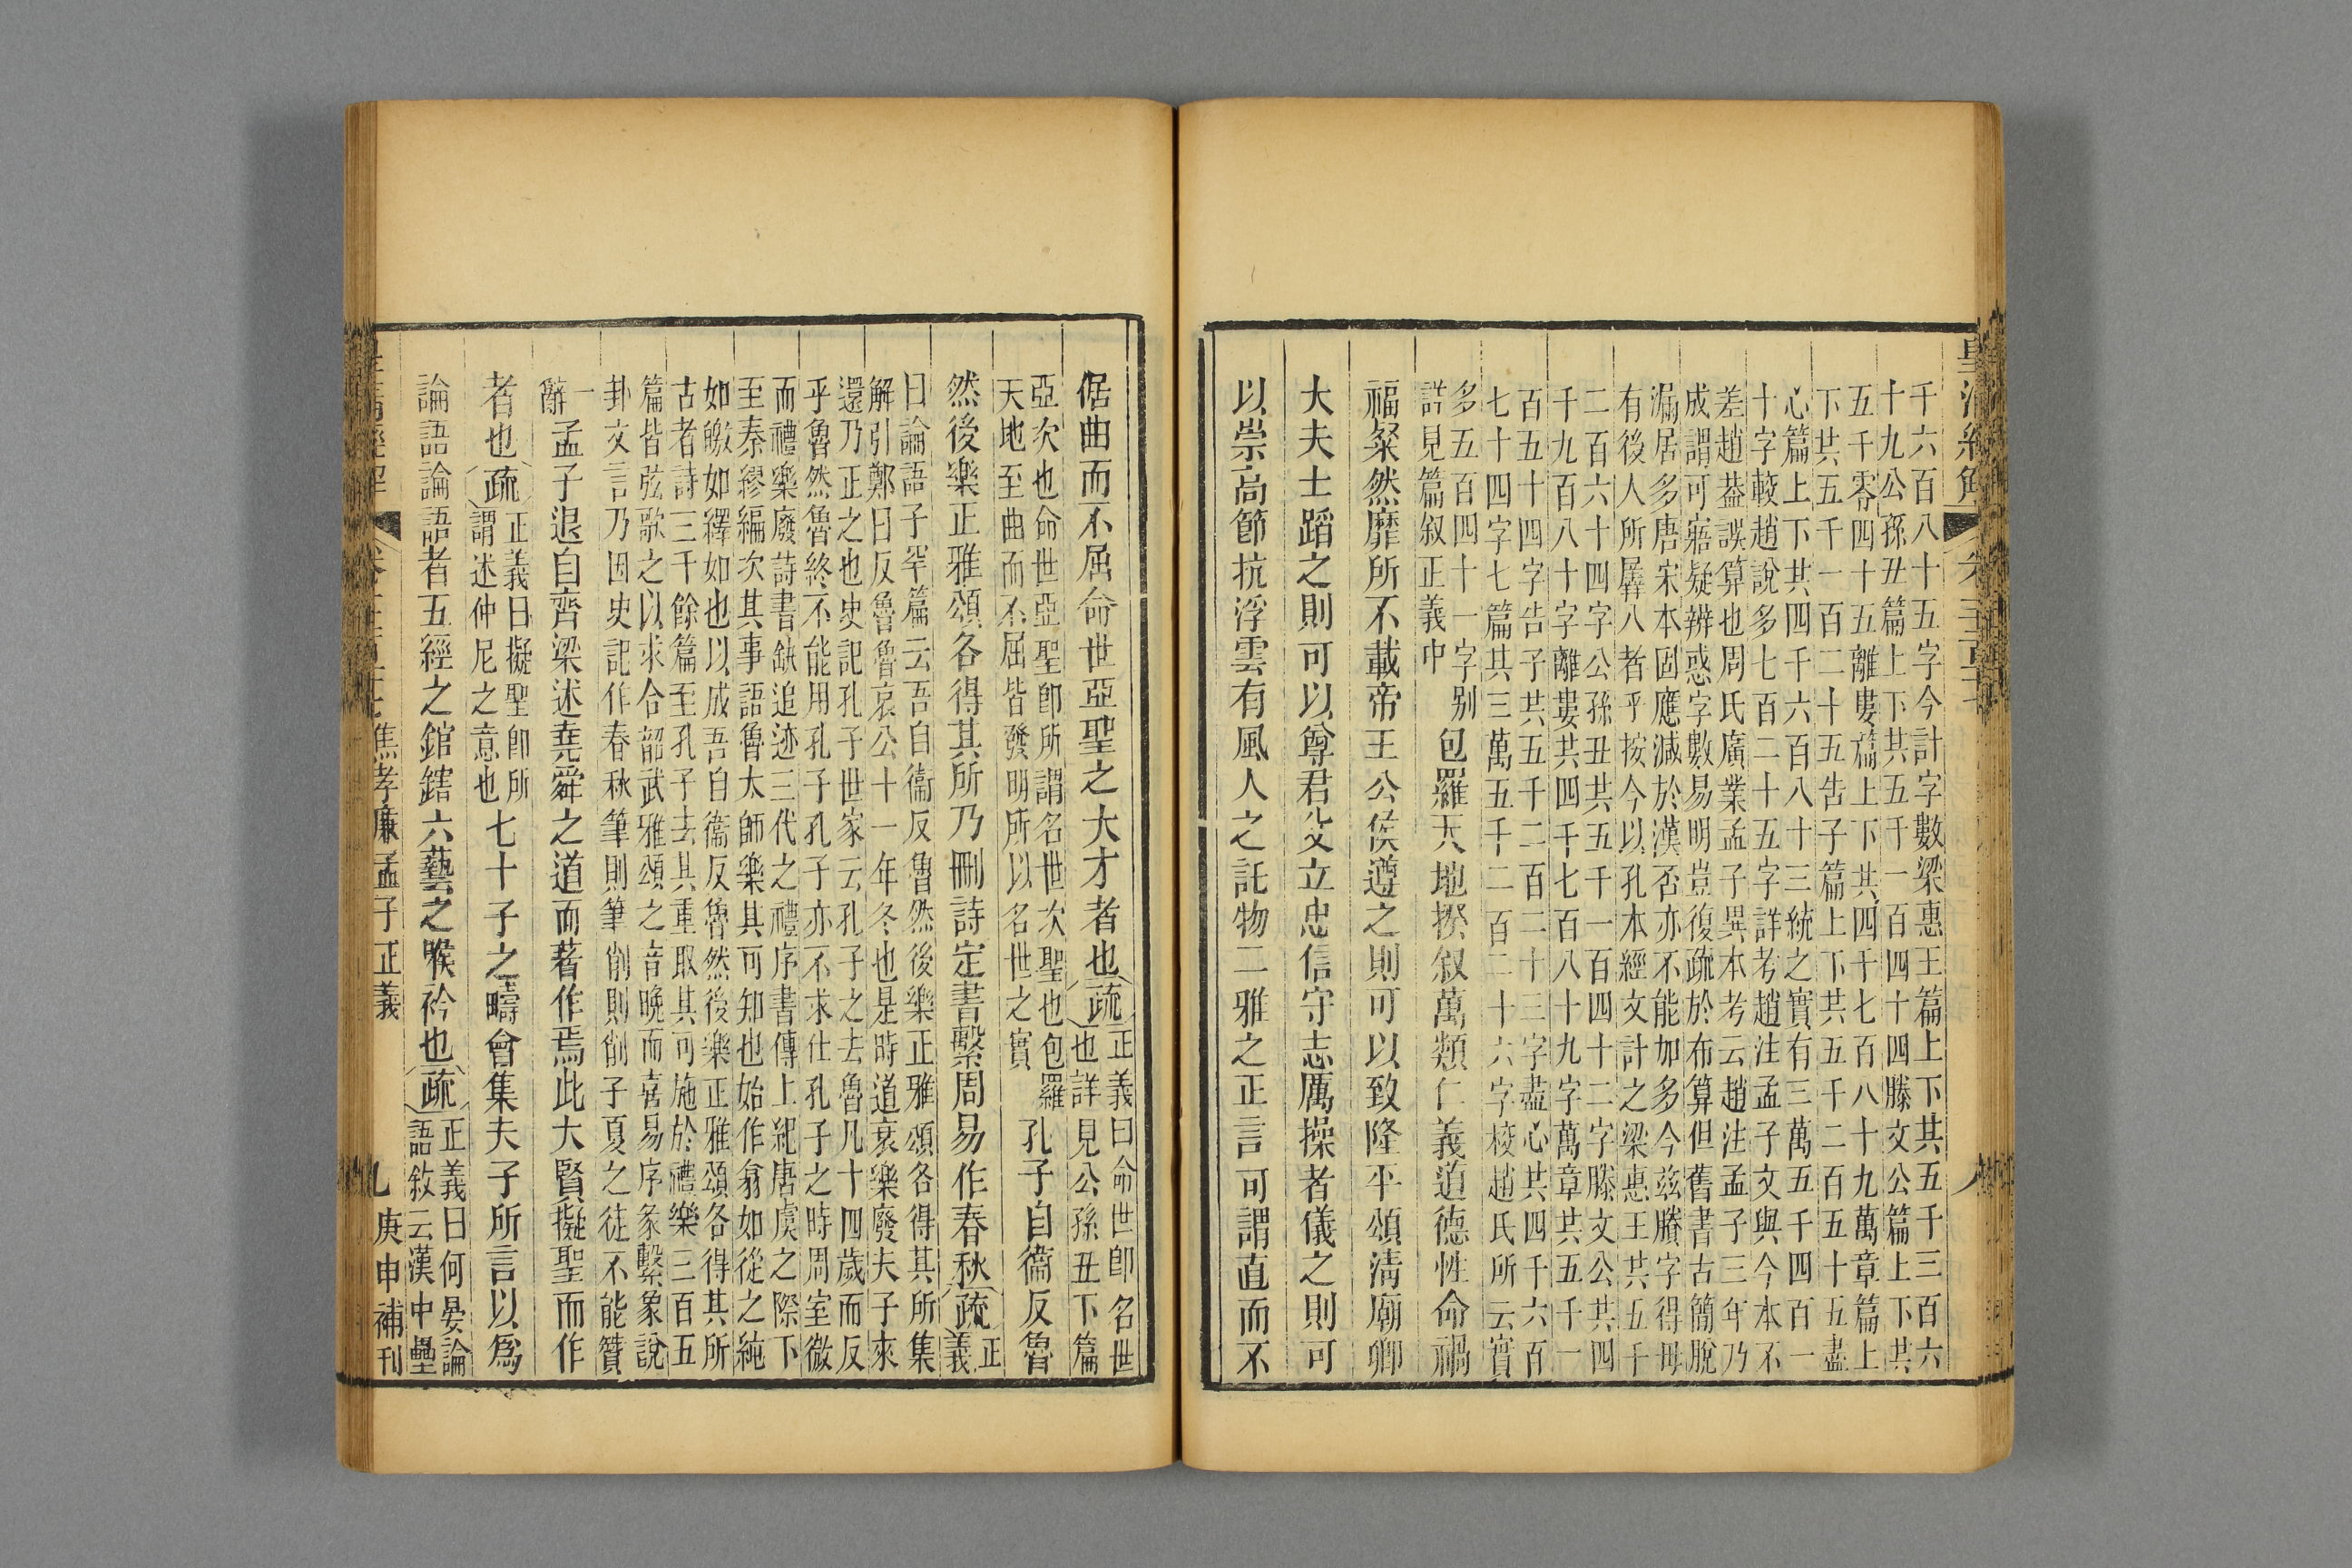 千六百八十五字今計字數梁惠王篇上下共五千三百六
十九公孫丑篇上下共五千一百四十四滕文公篇上下共
五千零四十五離婁篇上下共四千七百八十九萬章篇上
下共五千一百二十五告子篇上下共五千二百五十五盡
心篇上下共四千六百八十三統之實有三萬五千四百一
十字較趙說多七百二十五字詳考趙注孟子文與今本不
差趙葢誤算也周氏廣業孟子異本考云趙注孟子三年乃
成謂可寤疑辨惑字數易明豈復疏於布算但舊書古簡脫
漏居多唐宋本固應減於漢否亦不能加多今茲賸字得毋
有後人所羼入者乎按今以孔本經文計之梁惠王共五千
二百六十四字公孫丑共五千一百四十二字滕文公共四
千九百八十字離婁共四千七百八十九字萬章共五千一
百五十四字告子共五千二百二十三字盡心共四千六百
七十四字七篇共三萬五千二百二十六字校趙氏所云實
多五百四十一字别
詳見篇叙正義中
包羅天地揆叙萬類仁義道德性命禍
福粲然靡所不載帝王公侯遵之則可以致隆平頌淸廟卿
大夫士蹈之則可以尊君父立忠信守志厲操者儀之則可
以崇高節抗浮雲有風人之託物二雅之正言可謂直而不
倨曲而不屈命世亞聖之大才者也疏
正義曰命世卽名世
也詳見公孫丑下篇
亞次也命世亞聖卽所謂名世次聖也包羅
天地至曲而不屈皆發明所以名世之實
孔子自衞反魯
然後樂正雅頌各得其所乃刪詩定書繫周易作春秋疏
正
義
曰論語子罕篇云吾自衞反魯然後樂正雅頌各得其所集
解引鄭曰反魯魯哀公十一年冬也是時道衰樂廢夫子來
還乃正之也史記孔子世家云孔子之去魯凡十四歲而反
乎魯然魯終不能用孔子孔子亦不求仕孔子之時周室微
而禮樂廢詩書缺追迹三代之禮序書傳上紀唐虞之際下
至秦繆編次其事語魯太師樂其可知也始作翕如從之純
如皦如繹如也以成吾自衞反魯然後樂正雅頌各得其所
古者詩三千餘篇至孔子去其重取其可施於禮樂三百五
篇皆弦歌之以求合韶武雅頌之音晚而喜易序彖繫象說
卦文言乃因史記作春秋筆則筆削則削子夏之徒不能贊
一
辭
孟子退自齊梁述堯舜之道而著作焉此大賢擬聖而作
者也疏
正義曰擬聖卽所
謂述仲尼之意也
七十子之疇會集夫子所言以爲
論語論語者五經之錧鎋六藝之喉衿也疏
正義曰何晏論
語敘云漢中壘
焦孝廉孟子正義
九
庚申補刊